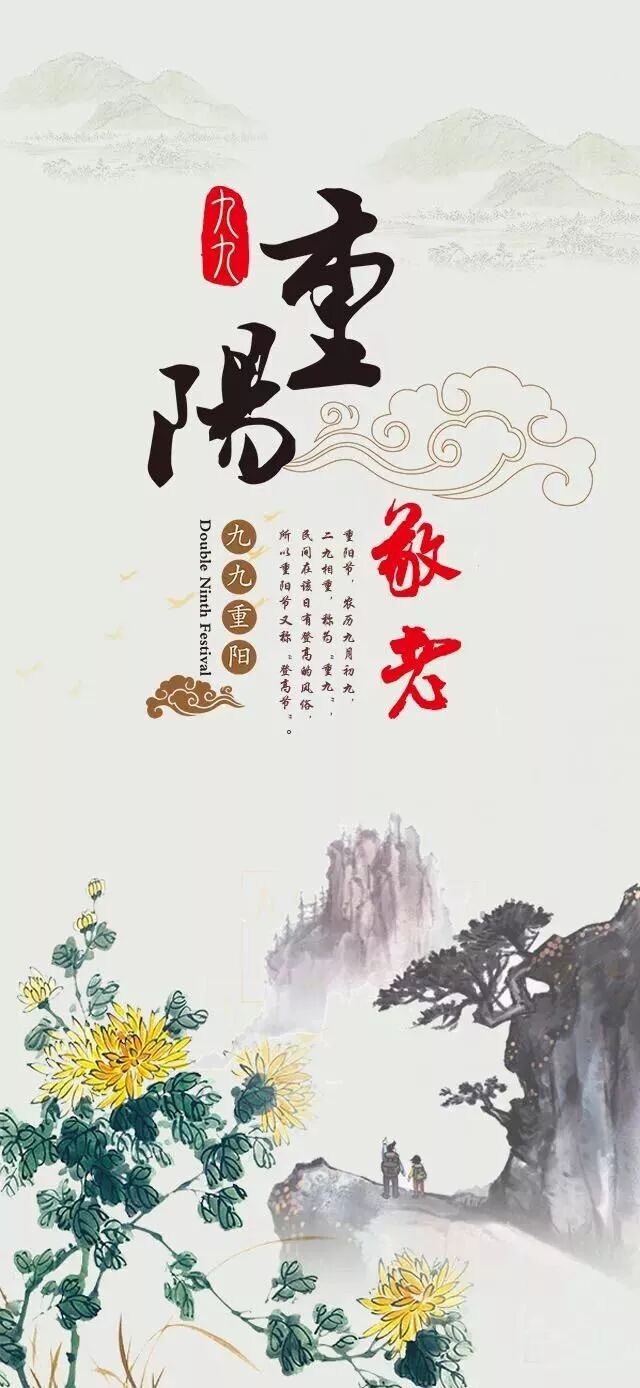 九九
重陽
敬老
重阳节，农历九月初九，
二九相重，称为“重九”，
民间在该日有登高的风俗，
所以重阳节又称“登高节”。
九九重阳
Double Ninth Festival